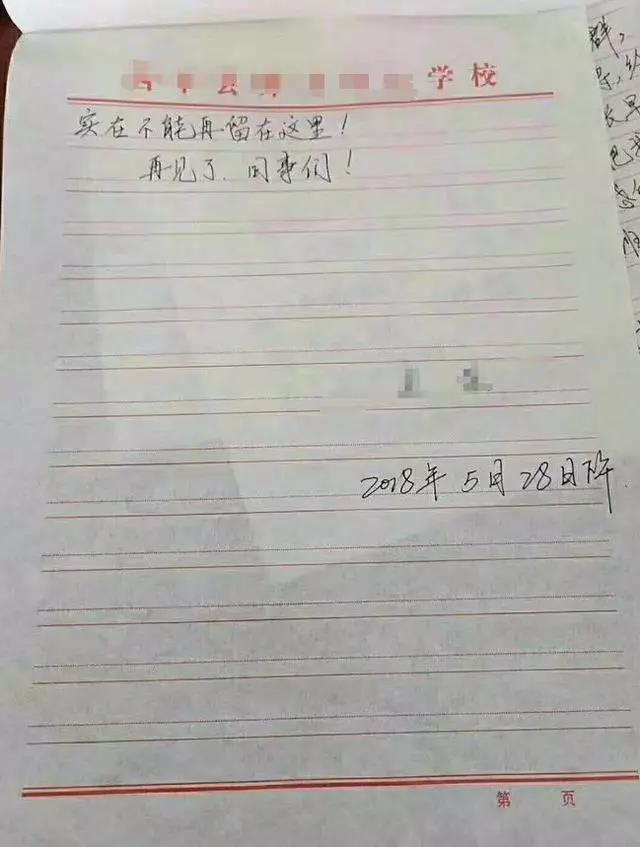 学校
实在不能再留在这里！
再见了、同事们！
2018年 5月 28日下午
第 页